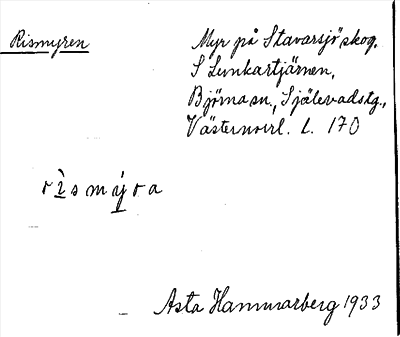 Rismyren
Myr på Stavarsjö skog.
S Lunkartjärnen,
Björna sn, Själevads tg.,
Västernorrl. L. 170
rìsmýra
Asta Hammarberg 1933